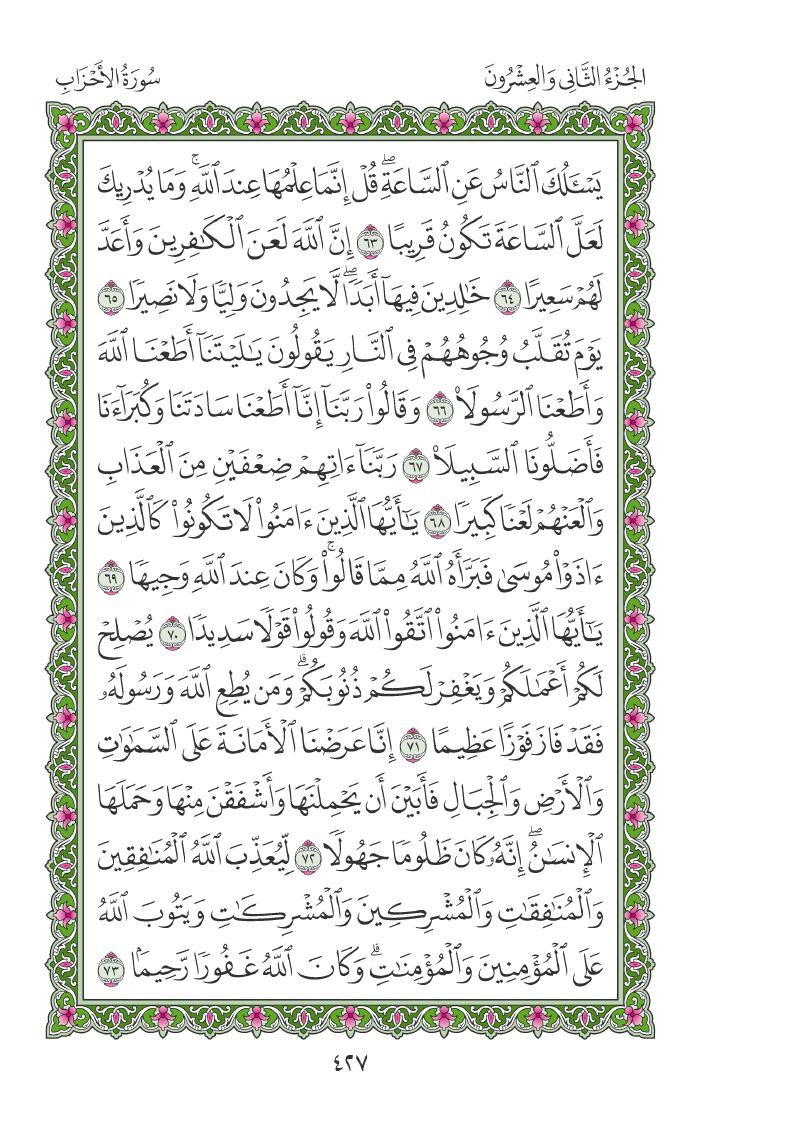 الجُزْءُ الثَّانِى وَالعِشْرُونَ
سُورَةُ الأَحْزَابِ
يَسْـَٔلُكَ ٱلنَّاسُ عَنِ ٱلسَّاعَةِۖ قُلْ إِنَّمَا عِلْمُهَا عِندَ ٱللَّهِۚ وَمَا يُدْرِيكَ
لَعَلَّ ٱلسَّاعَةَ تَكُونُ قَرِيبًا ٦٣ إِنَّ ٱللَّهَ لَعَنَ ٱلْكَٰفِرِينَ وَأَعَدَّ
لَهُمْ سَعِيرًا ٦٤ خَٰلِدِينَ فِيهَآ أَبَدًاۖ لَّا يَجِدُونَ وَلِيًّا وَلَا نَصِيرًا ٦٥
يَوْمَ تُقَلَّبُ وُجُوهُهُمْ فِى ٱلنَّارِ يَقُولُونَ يَٰلَيْتَنَآ أَطَعْنَا ٱللَّهَ
وَأَطَعْنَا ٱلرَّسُولَا۠ ٦٦ وَقَالُوا۟ رَبَّنَآ إِنَّآ أَطَعْنَا سَادَتَنَا وَكُبَرَآءَنَا
فَأَضَلُّونَا ٱلسَّبِيلَا۠ ٦٧ رَبَّنَآ ءَاتِهِمْ ضِعْفَيْنِ مِنَ ٱلْعَذَابِ
وَٱلْعَنْهُمْ لَعْنًا كَبِيرًا ٦٨ يَٰٓأَيُّهَا ٱلَّذِينَ ءَامَنُوا۟ لَا تَكُونُوا۟ كَٱلَّذِينَ
ءَاذَوْا۟ مُوسَىٰ فَبَرَّأَهُ ٱللَّهُ مِمَّا قَالُوا۟ۚ وَكَانَ عِندَ ٱللَّهِ وَجِيهًا ٦٩
يَٰٓأَيُّهَا ٱلَّذِينَ ءَامَنُوا۟ ٱتَّقُوا۟ ٱللَّهَ وَقُولُوا۟ قَوْلًا سَدِيدًا ٧٠ يُصْلِحْ
لَكُمْ أَعْمَٰلَكُمْ وَيَغْفِرْ لَكُمْ ذُنُوبَكُمْۗ وَمَن يُطِعِ ٱللَّهَ وَرَسُولَهُۥ
فَقَدْ فَازَ فَوْزًا عَظِيمًا ٧١ إِنَّا عَرَضْنَا ٱلْأَمَانَةَ عَلَى ٱلسَّمَٰوَٰتِ
وَٱلْأَرْضِ وَٱلْجِبَالِ فَأَبَيْنَ أَن يَحْمِلْنَهَا وَأَشْفَقْنَ مِنْهَا وَحَمَلَهَا
ٱلْإِنسَٰنُۖ إِنَّهُۥ كَانَ ظَلُومًا جَهُولًا ٧٢ لِّيُعَذِّبَ ٱللَّهُ ٱلْمُنَٰفِقِينَ
وَٱلْمُنَٰفِقَٰتِ وَٱلْمُشْرِكِينَ وَٱلْمُشْرِكَٰتِ وَيَتُوبَ ٱللَّهُ
عَلَى ٱلْمُؤْمِنِينَ وَٱلْمُؤْمِنَٰتِۗ وَكَانَ ٱللَّهُ غَفُورًا رَّحِيمًۢا ٧٣
٤٢٧